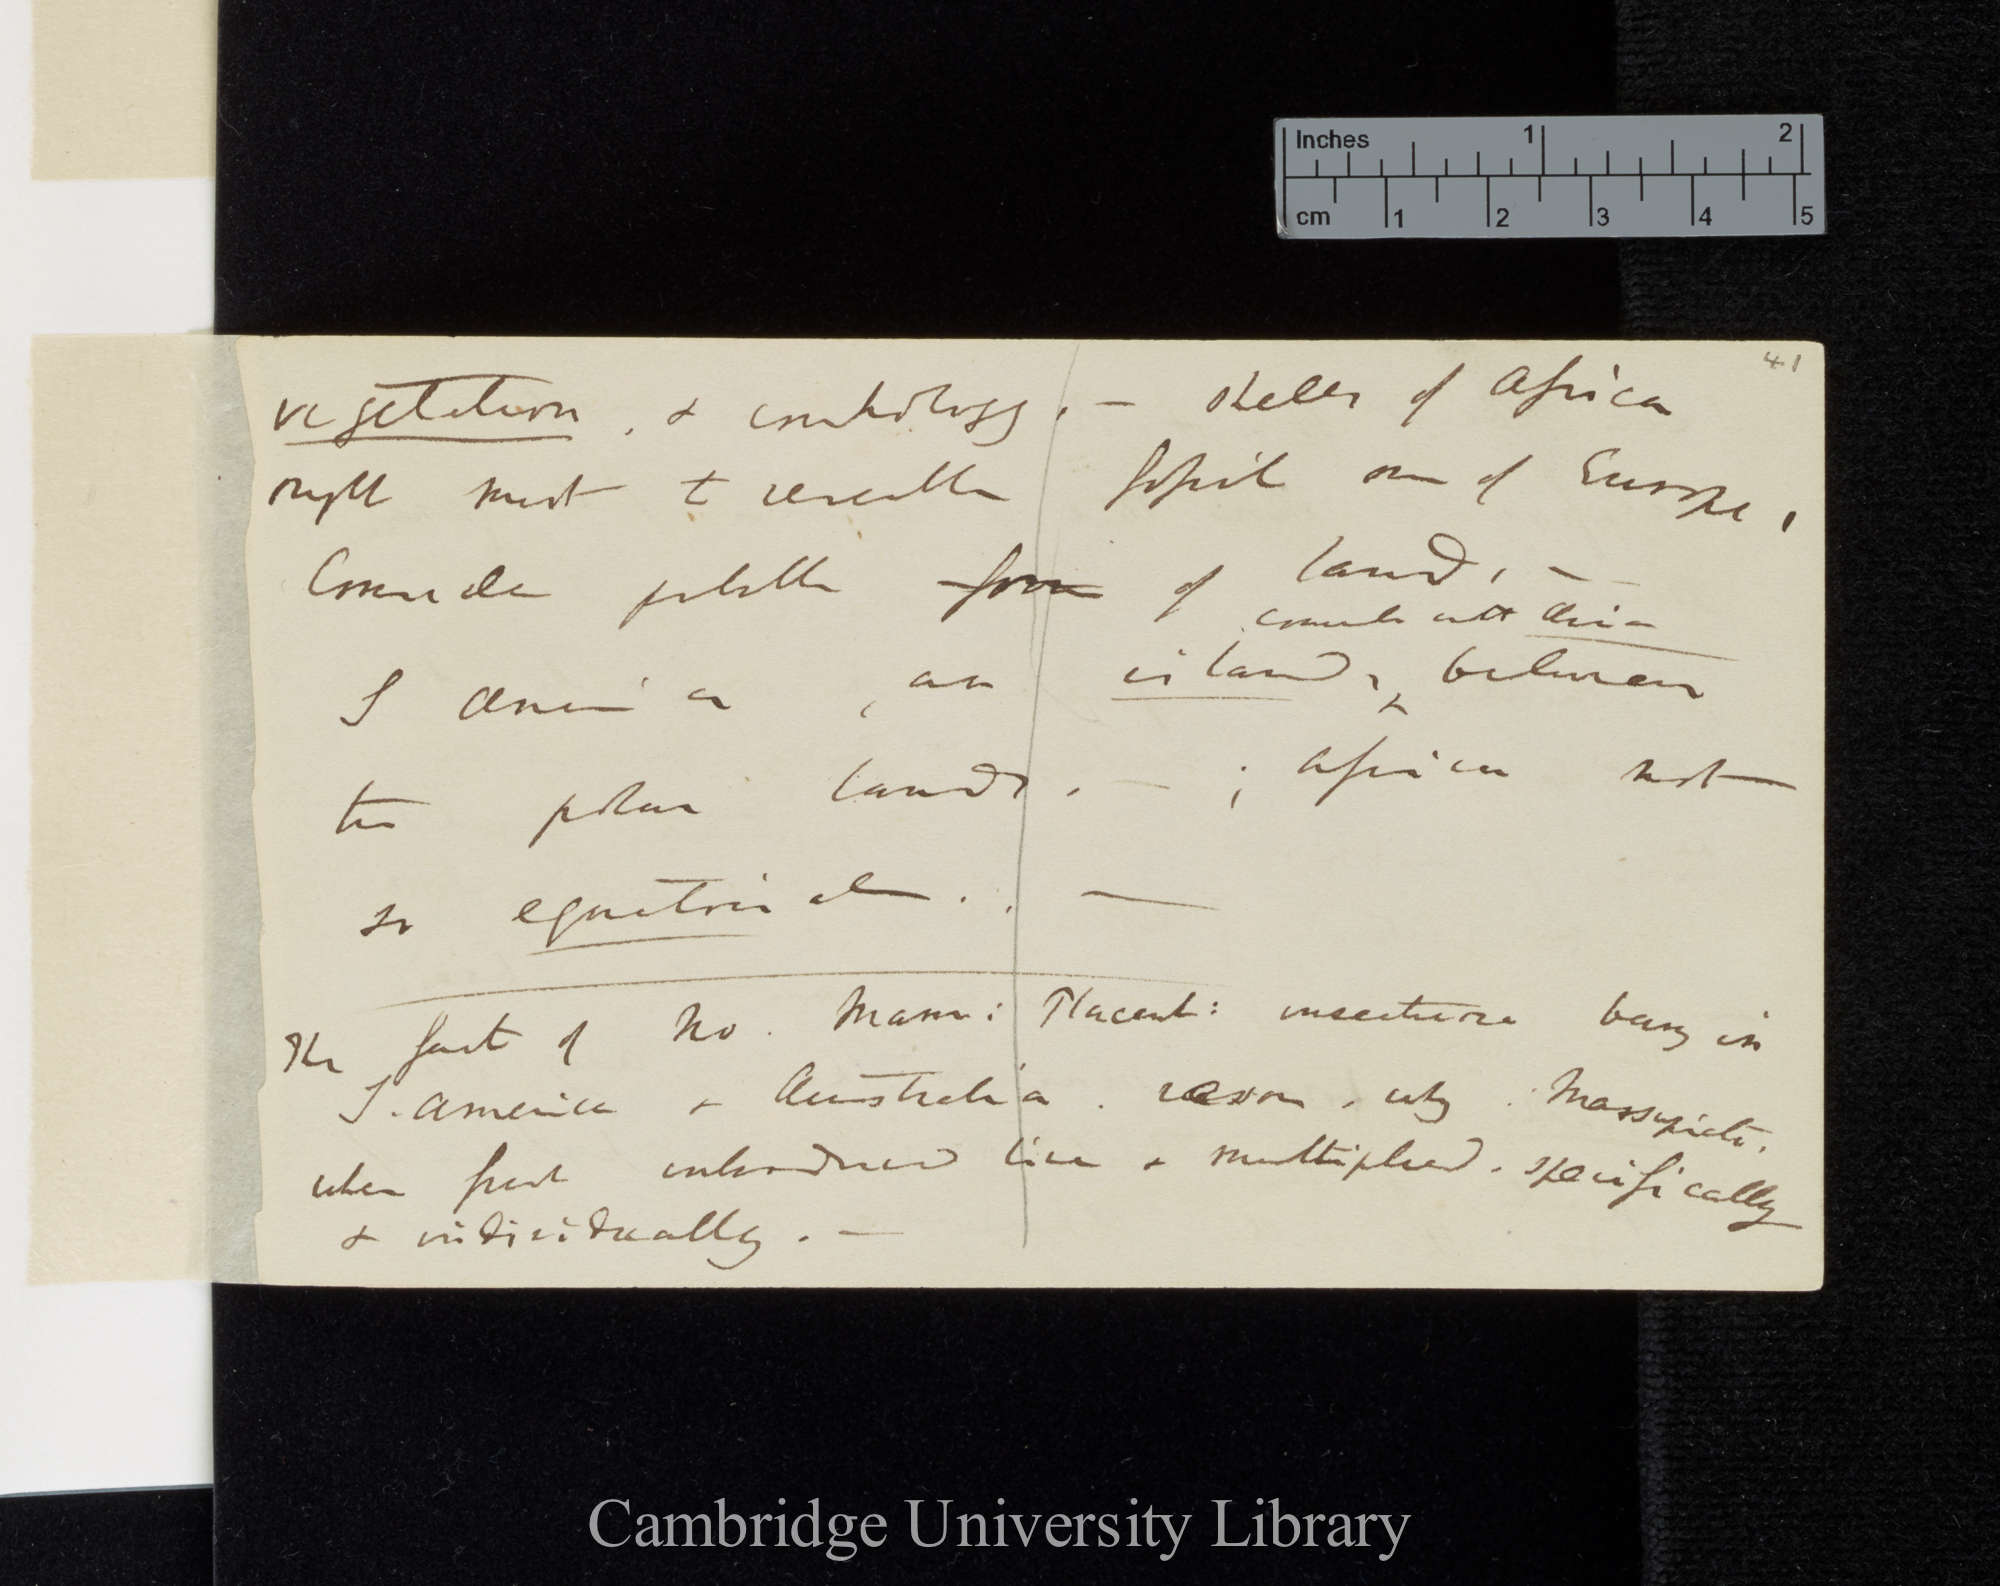 Inches 1 2
cm 1 2 3 4 5
41
vegetation, & conchology. — shells of Africa
ought most to resemble fossil ones of Europe,
Consider probable form of land, —
connected with Asia
S America, an island, between
the polar lands. — ; Africa not
so equatorial. . —
The fact of No. Mamm: Placent: insectivora being in
S. America & Australia. reason. why. Marsupiata.
when first introduced live & multiplied. specifically
& individually. —
Cambridge University Library